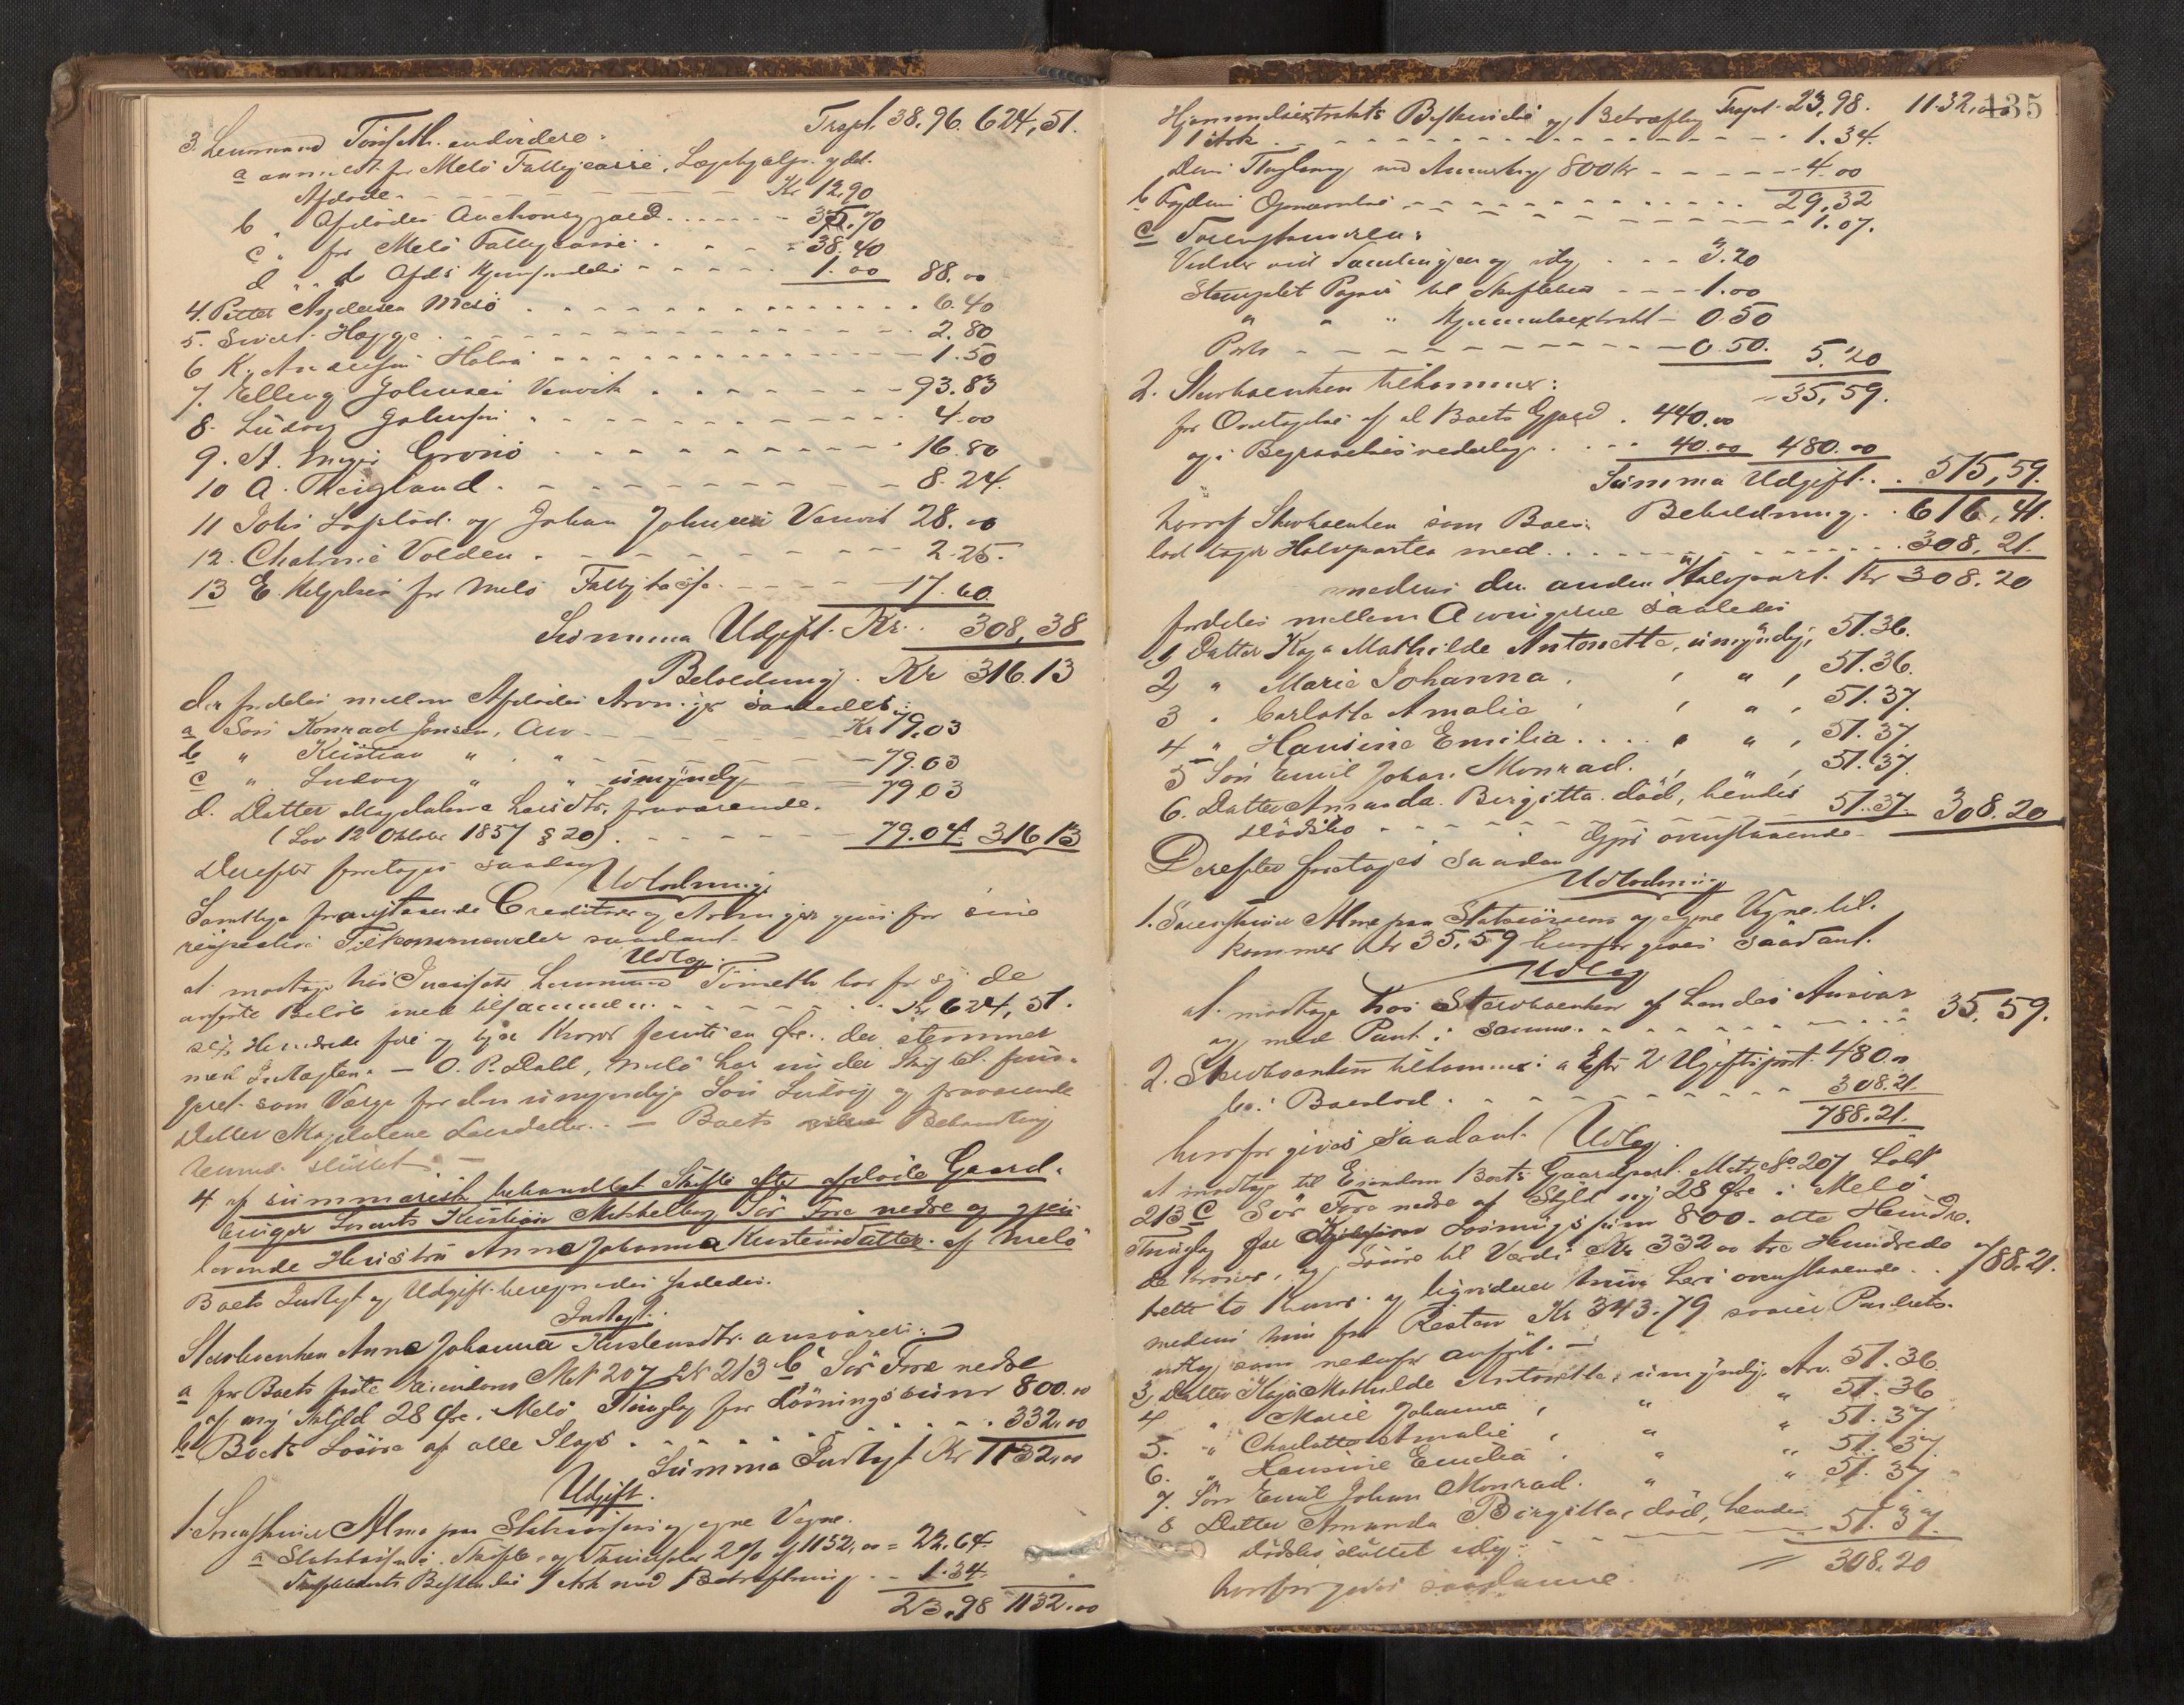 Trspt. 38.96. 624,51.
3. Lensmand Tönseth. andvidere:
a anmeldt for Melö Fattigcasse, Lægehjælp. ydet
Afdöde - Kr 12.90
b " Afdödes Auctionsgjæld 35.70
c " for Melö Fattigcasse 38.40
d " do Afds 1.00 88.00
4. Petter Andersen Mesö 6.40
5. Sivert Hagge 2.80
6 K. Andersen Halsa 1.50
7. Elling Johnsen Venvik 93.83
8. Ludvig Johnsen 4.00
9. A. Meyer Grönö 16.80
10 A. Reigland 8.24.
11 og Johan Johnsen Venvik 28.00
12. Volden 2.25.
13 E. Helgesen for Melö Fattigkasse 17.60.
Summa Udgift. Kr. 308,38
Beholdning. Kr 316.13
der fordeles mellem Afdödes Arvinger saaledes:
a Sön Konrad Jensen, Arv Kr 79.03
b " Kristian " " 79.03
c " Ludvig " " umyndig 79.03
d. Datter Magdalena Larsdtr. fraværende.
(Lov 12 Oktober 1857 § 20) 79.04. 316.13
Derefter foretoges saadan
Udlodning
Samtlige foranstaaende Creditorer og Arvinger gives for sine
respective Tilkommender saadant
Udlæg:
at modtage hos Lensmand Tönseth hver for sig de
anförte Belöb med tilsammen Kr 624,51.
sex Hundrede fire og tyve Kroner femti en Øre. der stemmer
med Indtægten. — O. P. Dahl, Melö har under Skiftet funge-
geret som Værge for den umyndige Sön Ludvig og fraværende
Datter Magdalene Larsdatter. — Boets Behandling
sluttet —
4. af summarisk behandlet Skifte efter afdöde Gaard-
bruger Lorents Kristian Mikkelsen Sör Fore nedre og gjen-
levende Hustru Anna Johanna Kristensdatter af Melö
Boets Indtægt og Udgift beregnedes saaledes.
Indtægt:
Sterboenken Anna Johanna Kristensdtr. ansvarer:
a for Boets faste Eiendom Mat 207 Lb 213 c Sör Fore nedre
af ny Skyld 28 Øre i Melö Thinglag for Lösningssum 800.00
b Boets Lösöre af alle Slags 332.00
Summa Indtægt Kr 1132,00
Udgift.
1. Sorenskriver Alme paa Statskassens og egne Vegne.
a Statskassen i Skifte- og 2% af 1132,00 = 22.64.
Beskrivelse 1 Ark med Bekræftning 1.34.
23.98 1132.00
135
Hjemmelsextrakts Beskrivelse og Bekræftning Trspt. 23,98. 1132,00
1 Ark 1.34.
Dens Thinglysning med Anmerkning 800 Kr 4.00
29,32
b Fogdens 1.07.
c Sorenskriveren:
3.20
Stemplet Papir til Skiftebrev 1.00
" " " Hjemmelsextrakt 0.50
Porto 0.50. 5.20
35,59.
2. Sterboenken tilkommer:
for Overtagelse af al Boets Gjæld 440.00
og i Begravelsesvederlag 40.00 480.00
Summa Udgift 515,59.
Beholdning 616,41.
hvoraf Sterboenken som Boes-
lod tager Halvparten med 308,21.
medens den anden Halvpart Kr 308.20
fordeles mellem Arvingerne saaledes
1, Datter Kaja Mathilde Antonette, umyndig, 51.36.
2, " Marie Johanna , " , 51.36.
3 " Carlotta Amalie , " , 51.37.
4 " Hansine Emilia , " , 51.37
5 Sön Emil Johan Monrad , " , 51.37.
6. Datter Amanda Birgitta död, hendes
Dödsbo 51.37. 308.20
Gjör ovenstaaende
Derefter foretoges saadan
Udlodning
1. Sorenskriver Alme paa Statskassens og egne Vegne til-
kommer Kr 35,59 hvorfor gives saadant.
Udlæg
at modtage hos Sterboenken af hendes Ansvar
og med Pant i samme 35.59.
2. Sterboenken tilkommer: a Efter 2 Udgiftspost. 480.00
b. i Boeslod 308.21.
788.21.
hvorfor gives saadant Udlæg
at modtage til Eiendom Boets Gaardpart Mat. No 207 Löbe
213 C Sör Fore nedre af Skyld ny 28 Øre i Melö
Thinglag for Lösningssum 800. otte Hundre-
de Kroner, og Lösöre til Værdi Kr 332.00 tre Hundrede og
tretti to Kroner og ligviderer hun heri ovenstaaende 788.21.
medens hun for Resten Kr 343.79 svarer Panhets-
udlæg som nedenfor anfört. —
3, Datter Kaja Mathilde Antonette, umyndig, Arv. 51.36.
4 " Marie Johanna , " " 51.36
5. " Charlotte Amalie , " " 51.37
6. " Hansine Emilia , " " 51.37.
7. Sön Emil Johan Monrad. " " 51.37
8 Datter Amanda Birgitta, död, hendes
Dödsbo 51.37.
308.20
hvorfor gives saadanne